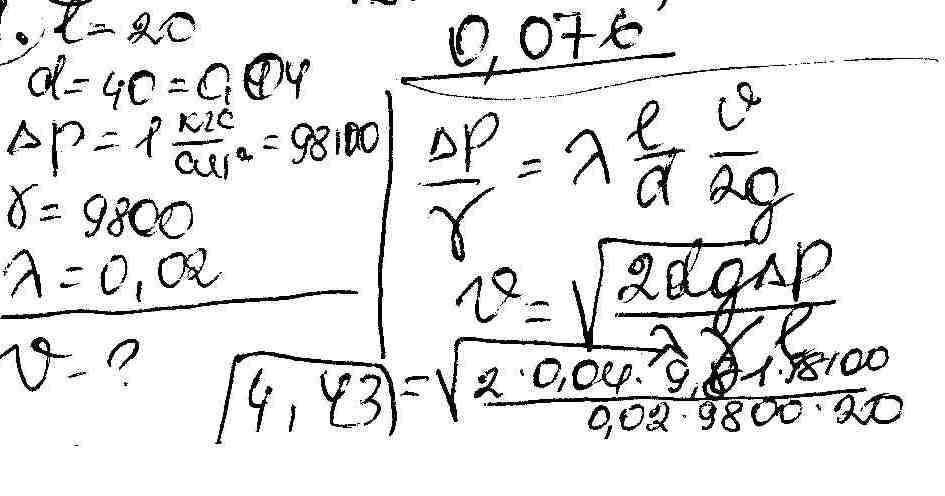 l = 20
d = 40 = 0,04
Δp = 1 кгс/см² = 98100
γ = 9800
λ = 0,02
v = ?
0,076
Δp/γ = λ l/d v/2g
v = √(2dgΔp/λγl)
4,43 = √(2·0,04·9,81·98100/0,02·9800·20)